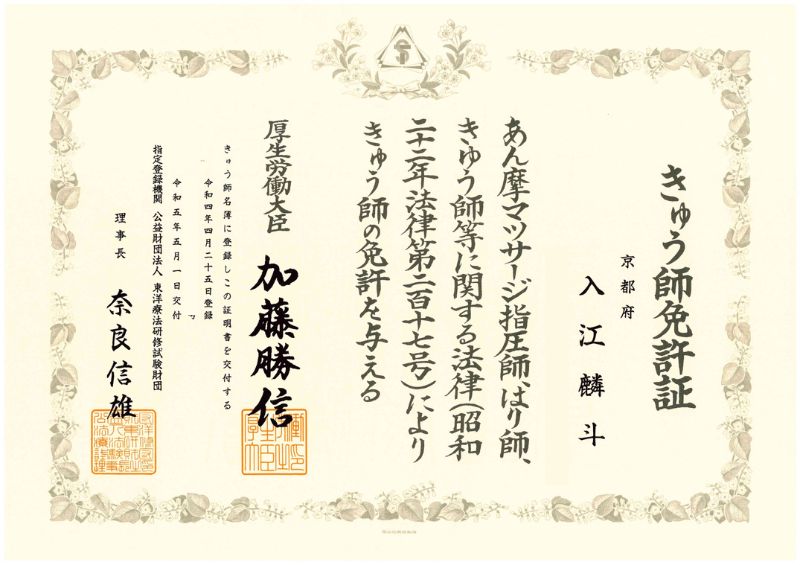 きゅう師免許証
京都府
入江麟斗
あん摩マツサージ指圧師、はり師、
きゆう師等に関する法律(昭和
二十二年法律第二百十七号)により
きゅう師の免許を与える
厚生労働大臣 加藤勝信
きゅう師名簿に登録しこの証明書を交付する
令和四年四月二十五日登録
令和五年五月一日交付
指定登録機関 公益財団法人 東洋療法研修試験財団
理事長 奈良信雄